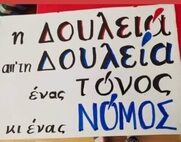 η ΔΟυΛειά
απ'τη ΔΟυΛεία
ένας ΤΌΝΟΣ
κι ένας ΝΌΜΟΣ